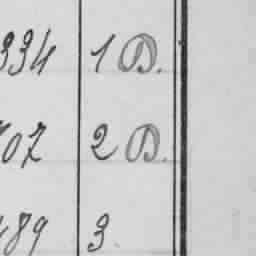 334 1 D.
707 2 D.
489 3.